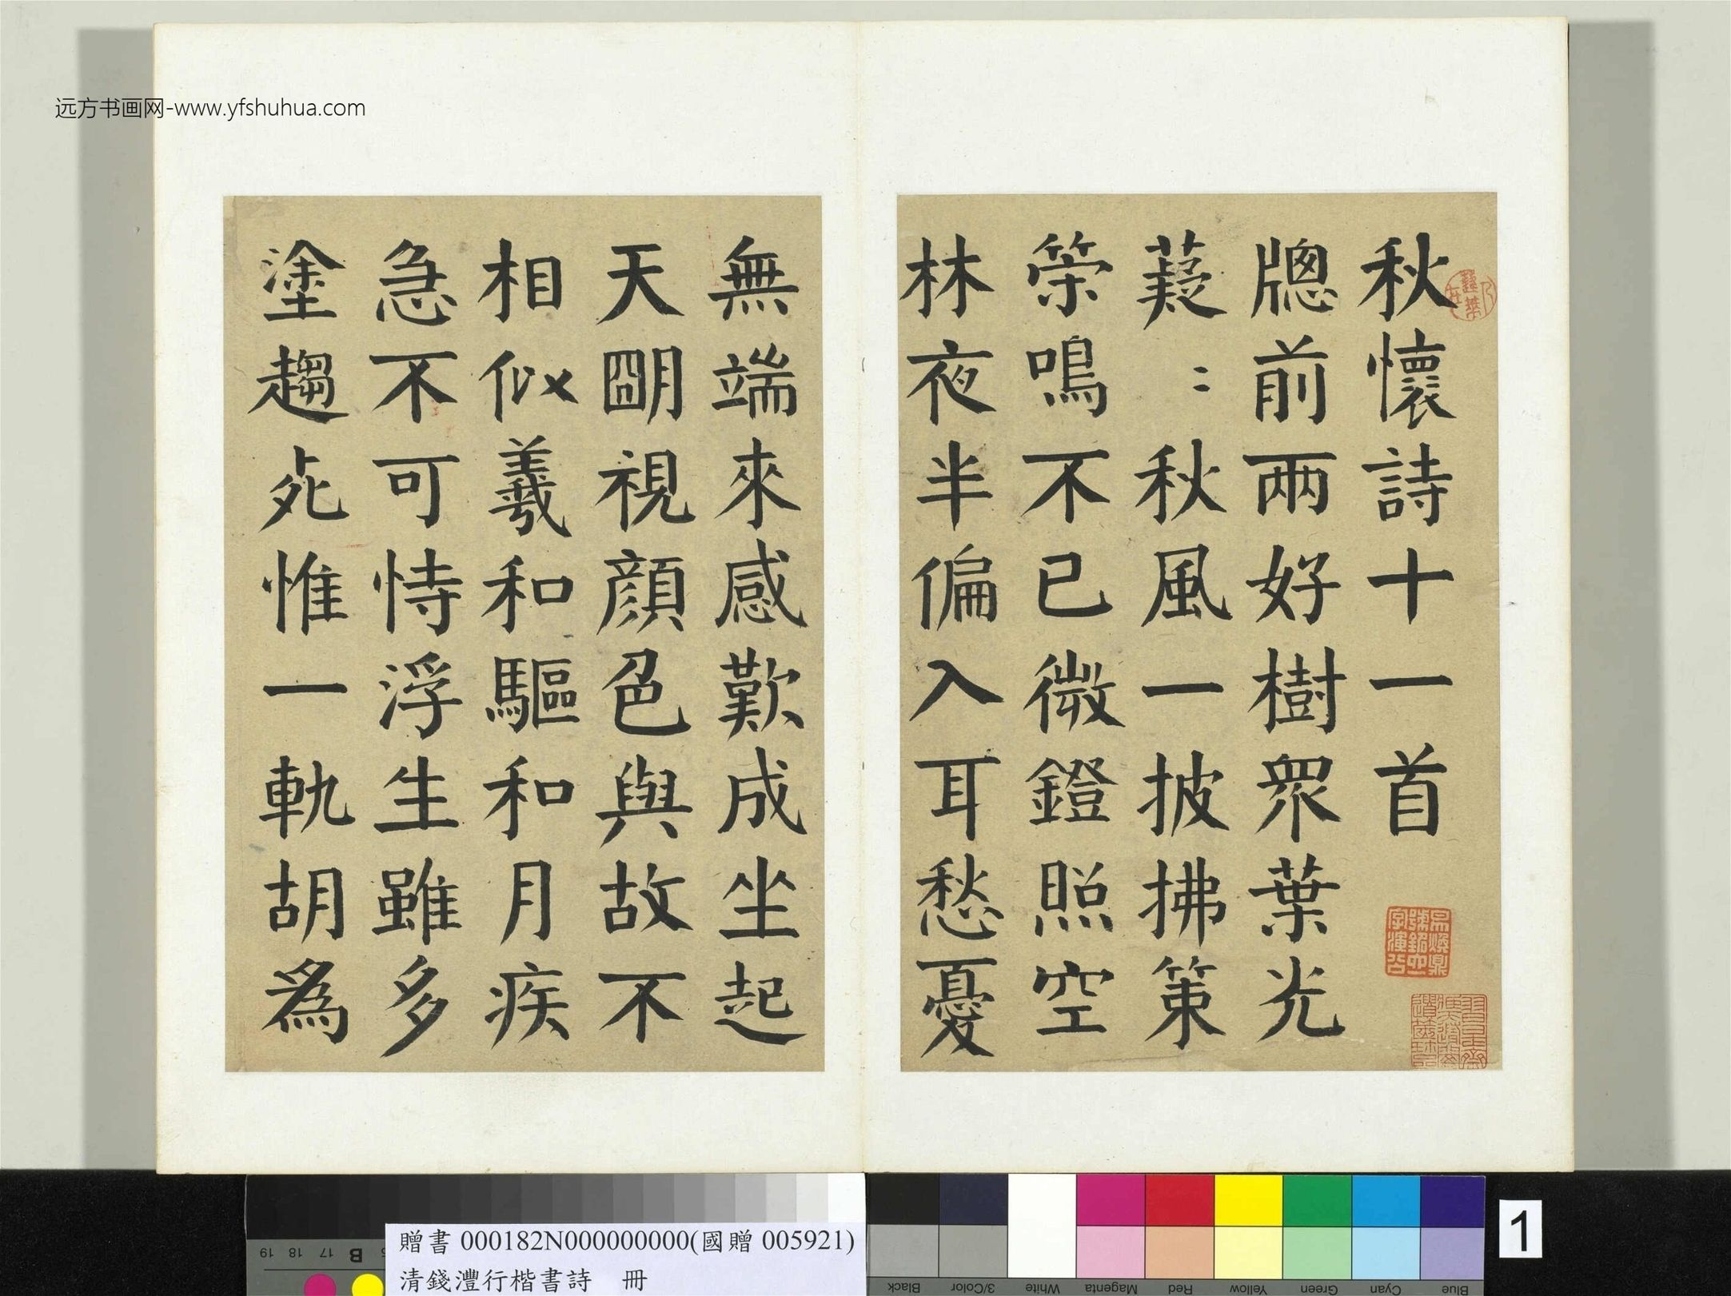 远方书画网-www.yfshuhua.com
秋懷詩十一首
牕前兩好樹衆葉光
薿：秋風一披拂策
策鳴不已微鐙照空
林夜半偏入耳愁憂
無端來感歎成坐起
天朙視顏色與故不
相似羲和驅和月疾
急不可恃浮生雖多
塗趨死惟一軌胡爲
贈書 000182N000000000(國贈 005921)
清錢灃行楷書詩 冊
19 18 17 B
Black 3/Color White Magenta Red Yellow Green Cyan Blue
1